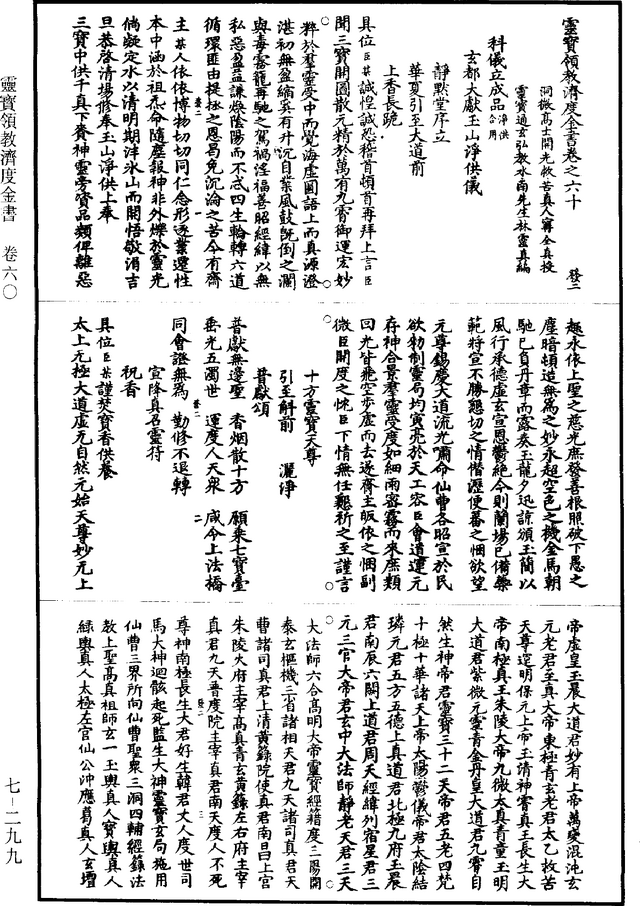 靈寶領教濟度金書卷之六十 發二
洞微高士開光救苦真人甯全真授
靈寶通玄弘教水南先生林靈真編
科儀立成品 淨供合用
玄都大獻玉山淨供儀
靜默堂序立
華夏引至大道前
上香長跪
具位臣某誠惶誠恐稽首頓首再拜上言臣
聞三寶開圖散元精於萬有九霄御運宏妙
粹於羣靈受中而覺海虛圓語上而真源澄
湛初無盈縮奚有升沉自業風鼓旣倒之瀾
與毒霧寵再馳之駕禍淫福善昭經緯以無
私惡盈益謙煥陰陽而不忒四生輪轉六道
循環匪由拯極之恩曷免沉淪之苦今有齋
主某人依依博物切切同仁念形逐業遷性
本中涵於祖炁命隨塵報神非外爍於靈光
倘凝定水以清明期泮氷山而開悟敬涓吉
旦恭啓清場修奉玉山淨供上奉
三寶中供千真下賚神靈旁資品類俾離惡
趣永依上聖之慈光庶發善根照破下愚之
塵暗頓造無爲之妙永超空色之機金馬朝
馳已貟丹章而露奏玉龍夕迅諒頒玉簡以
風行承德虛玄宣恩欝絶今則蘭場已備蘂
範將宣不勝懇切之情僭瀝便蕃之悃欲望
元尊錫慶大道流光嘯命仙曹各昭宣於民
欲勑制靈局均寅亮於天工容臣會道運元
存神合景羣靈受度如細雨密霧而來庶類
回光皆飛空步虛而去遂齋主皈依之悃副
微臣開度之忱臣下情無任懇祈之至謹言
十方靈寶天尊
引至斛前 灑淨
普獻頌
普獻無邊聖 香烟散十方 願乘七寶臺
垂光五濁世 運度人天衆 咸令上法橋
同會證無爲 勤修不退轉
宣降真召靈符
祝香
具位臣某謹焚寶香供養
太上无極大道虛无自然元始天尊妙无上
帝虛皇玉晨大道君妙有上帝萬變混沌玄
元老君至真大帝東極青玄老君太乙救苦
天尊道明保元上帝玉清神霄真王長生大
帝南極真王朱陵大帝九微太真青童玉明
大道君紫微元靈青金丹皇大道君九霄自
然生神帝君靈寶三十二天帝君五老四梵
十極十華諸天上帝太陽欝儀帝君太陰結
璘元君五方五德上真道君北極九府玉晨
君南辰六闕上道君周天經緯列宿星君三
元三官大帝君玄中大法師靜老天君三天
大法師六合髙明大帝靈寶經籍度三陽開
泰玄樞機三省諸相天君九天諸司真君天
曹諸司真君上清黃籙院使真君南昌上宫
朱陵火府主宰髙真青玄黃籙左右府主宰
真君九天普度院主宰真君南天度人不死
尊神南極長生大君好生韓君丈人度世司
馬大神迴骸起死監生大神靈寶玄局施用
仙曹三界所向仙曹聖衆三洞四輔經籙法
教上聖髙真祖師玄一玉輿真人寶輿真人
綠輿真人太極左宫仙公沖應葛真人玄壇
靈寶領教濟度金書 卷六〇
七－二九九